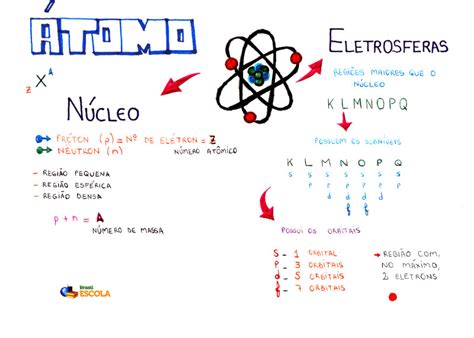 ÁTOMO
A
X
Z
NÚCLEO
PRÓTON (p) = Nº DE ELÉTRON = Z
NÚMERO ATÔMICO
NÊUTRON (n)
- REGIÃO PEQUENA
- REGIÃO ESFÉRICA
- REGIÃO DENSA
p + n = A
NÚMERO DE MASSA
Brasil
ESCOLA
ELETROSFERAS
REGIÕES MAIORES QUE O
NÚCLEO
K L M N O P Q
POSSUEM OS SUBNÍVEIS
K L M N O P Q
s s s s s s s
p p p p p p
d d d d
f f
POSSUI OS ORBITAIS
S - 1 ORBITAL
P - 3 ORBITAIS
d - 5 ORBITAIS
f - 7 ORBITAIS
REGIÃO COM,
NO MÁXIMO,
2 ELÉTRONS